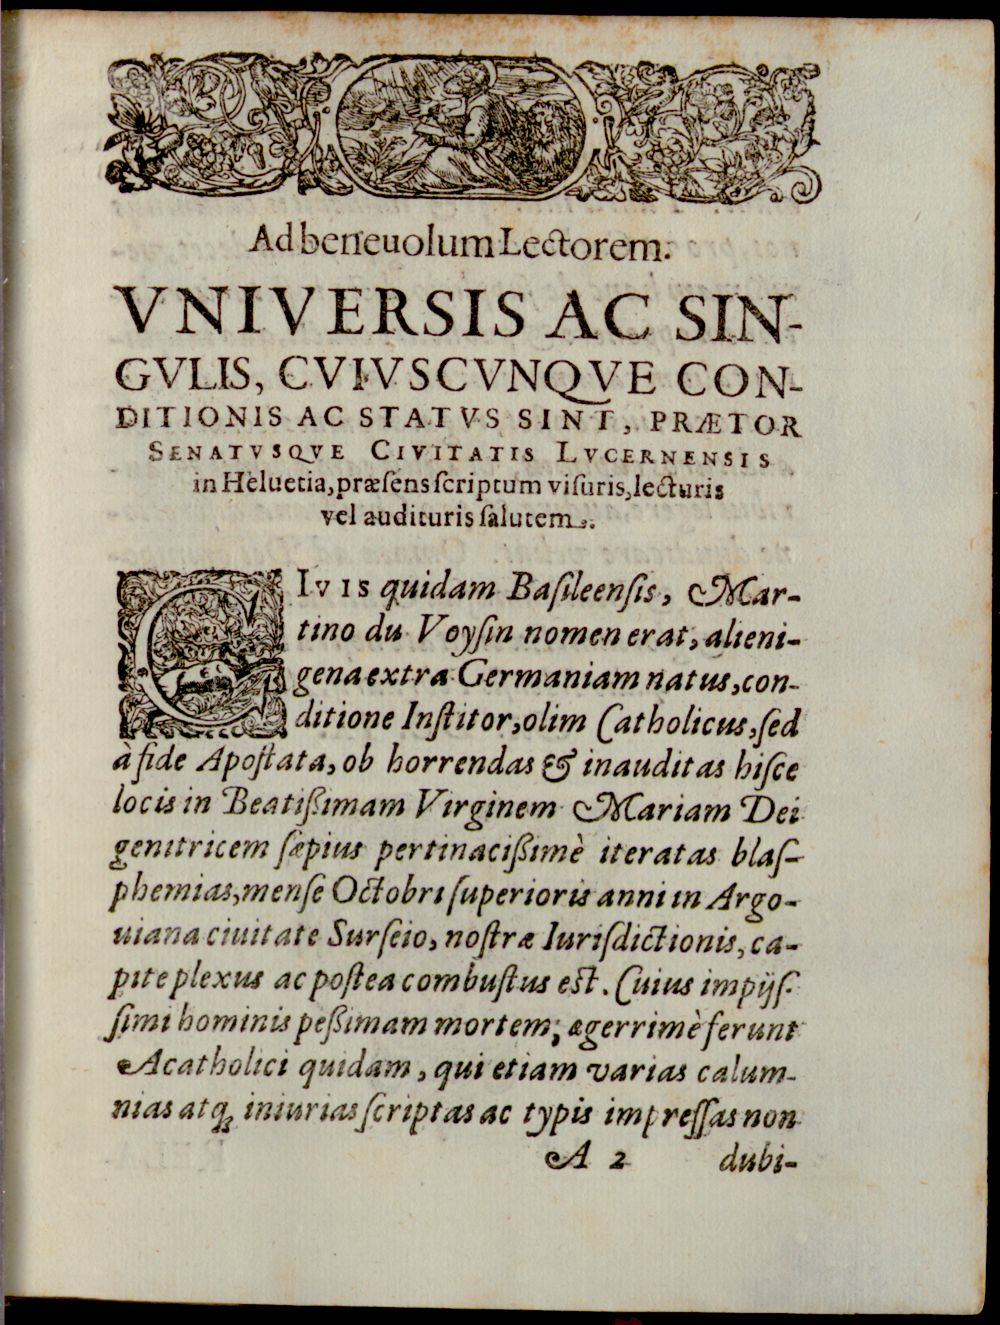 Ad beneuolum Lectorem.
VNIVERSIS AC SIN-
GVLIS, CVIVSCVNQVE CON-
DITIONIS AC STATVS SINT, PRÆTOR
SENATVSQVE CIVITATIS LVCERNENSIS
in Heluetia, præsens scriptum visuris, lecturis
vel audituris salutem.
CIVIS quidam Basileensis, Mar-
tino du Voysin nomen erat, alieni-
gena extra Germaniam natus, con-
ditione Institor, olim Catholicus, sed
à fide Apostata, ob horrendas & inauditas hisce
locis in Beatißimam Virginem Mariam Dei
genitricem sæpius pertinacißimè iteratas blas-
phemias, mense Octobri superioris anni in Argo-
uiana ciuitate Surseio, nostræ Iurisdictionis, ca-
pite plexus ac postea combustus est. Cuius impijs-
simi hominis peßimam mortem, ægerrimè ferunt
Acatholici quidam, qui etiam varias calum-
nias atq; iniurias scriptas ac typis impressas non
A 2 dubi-